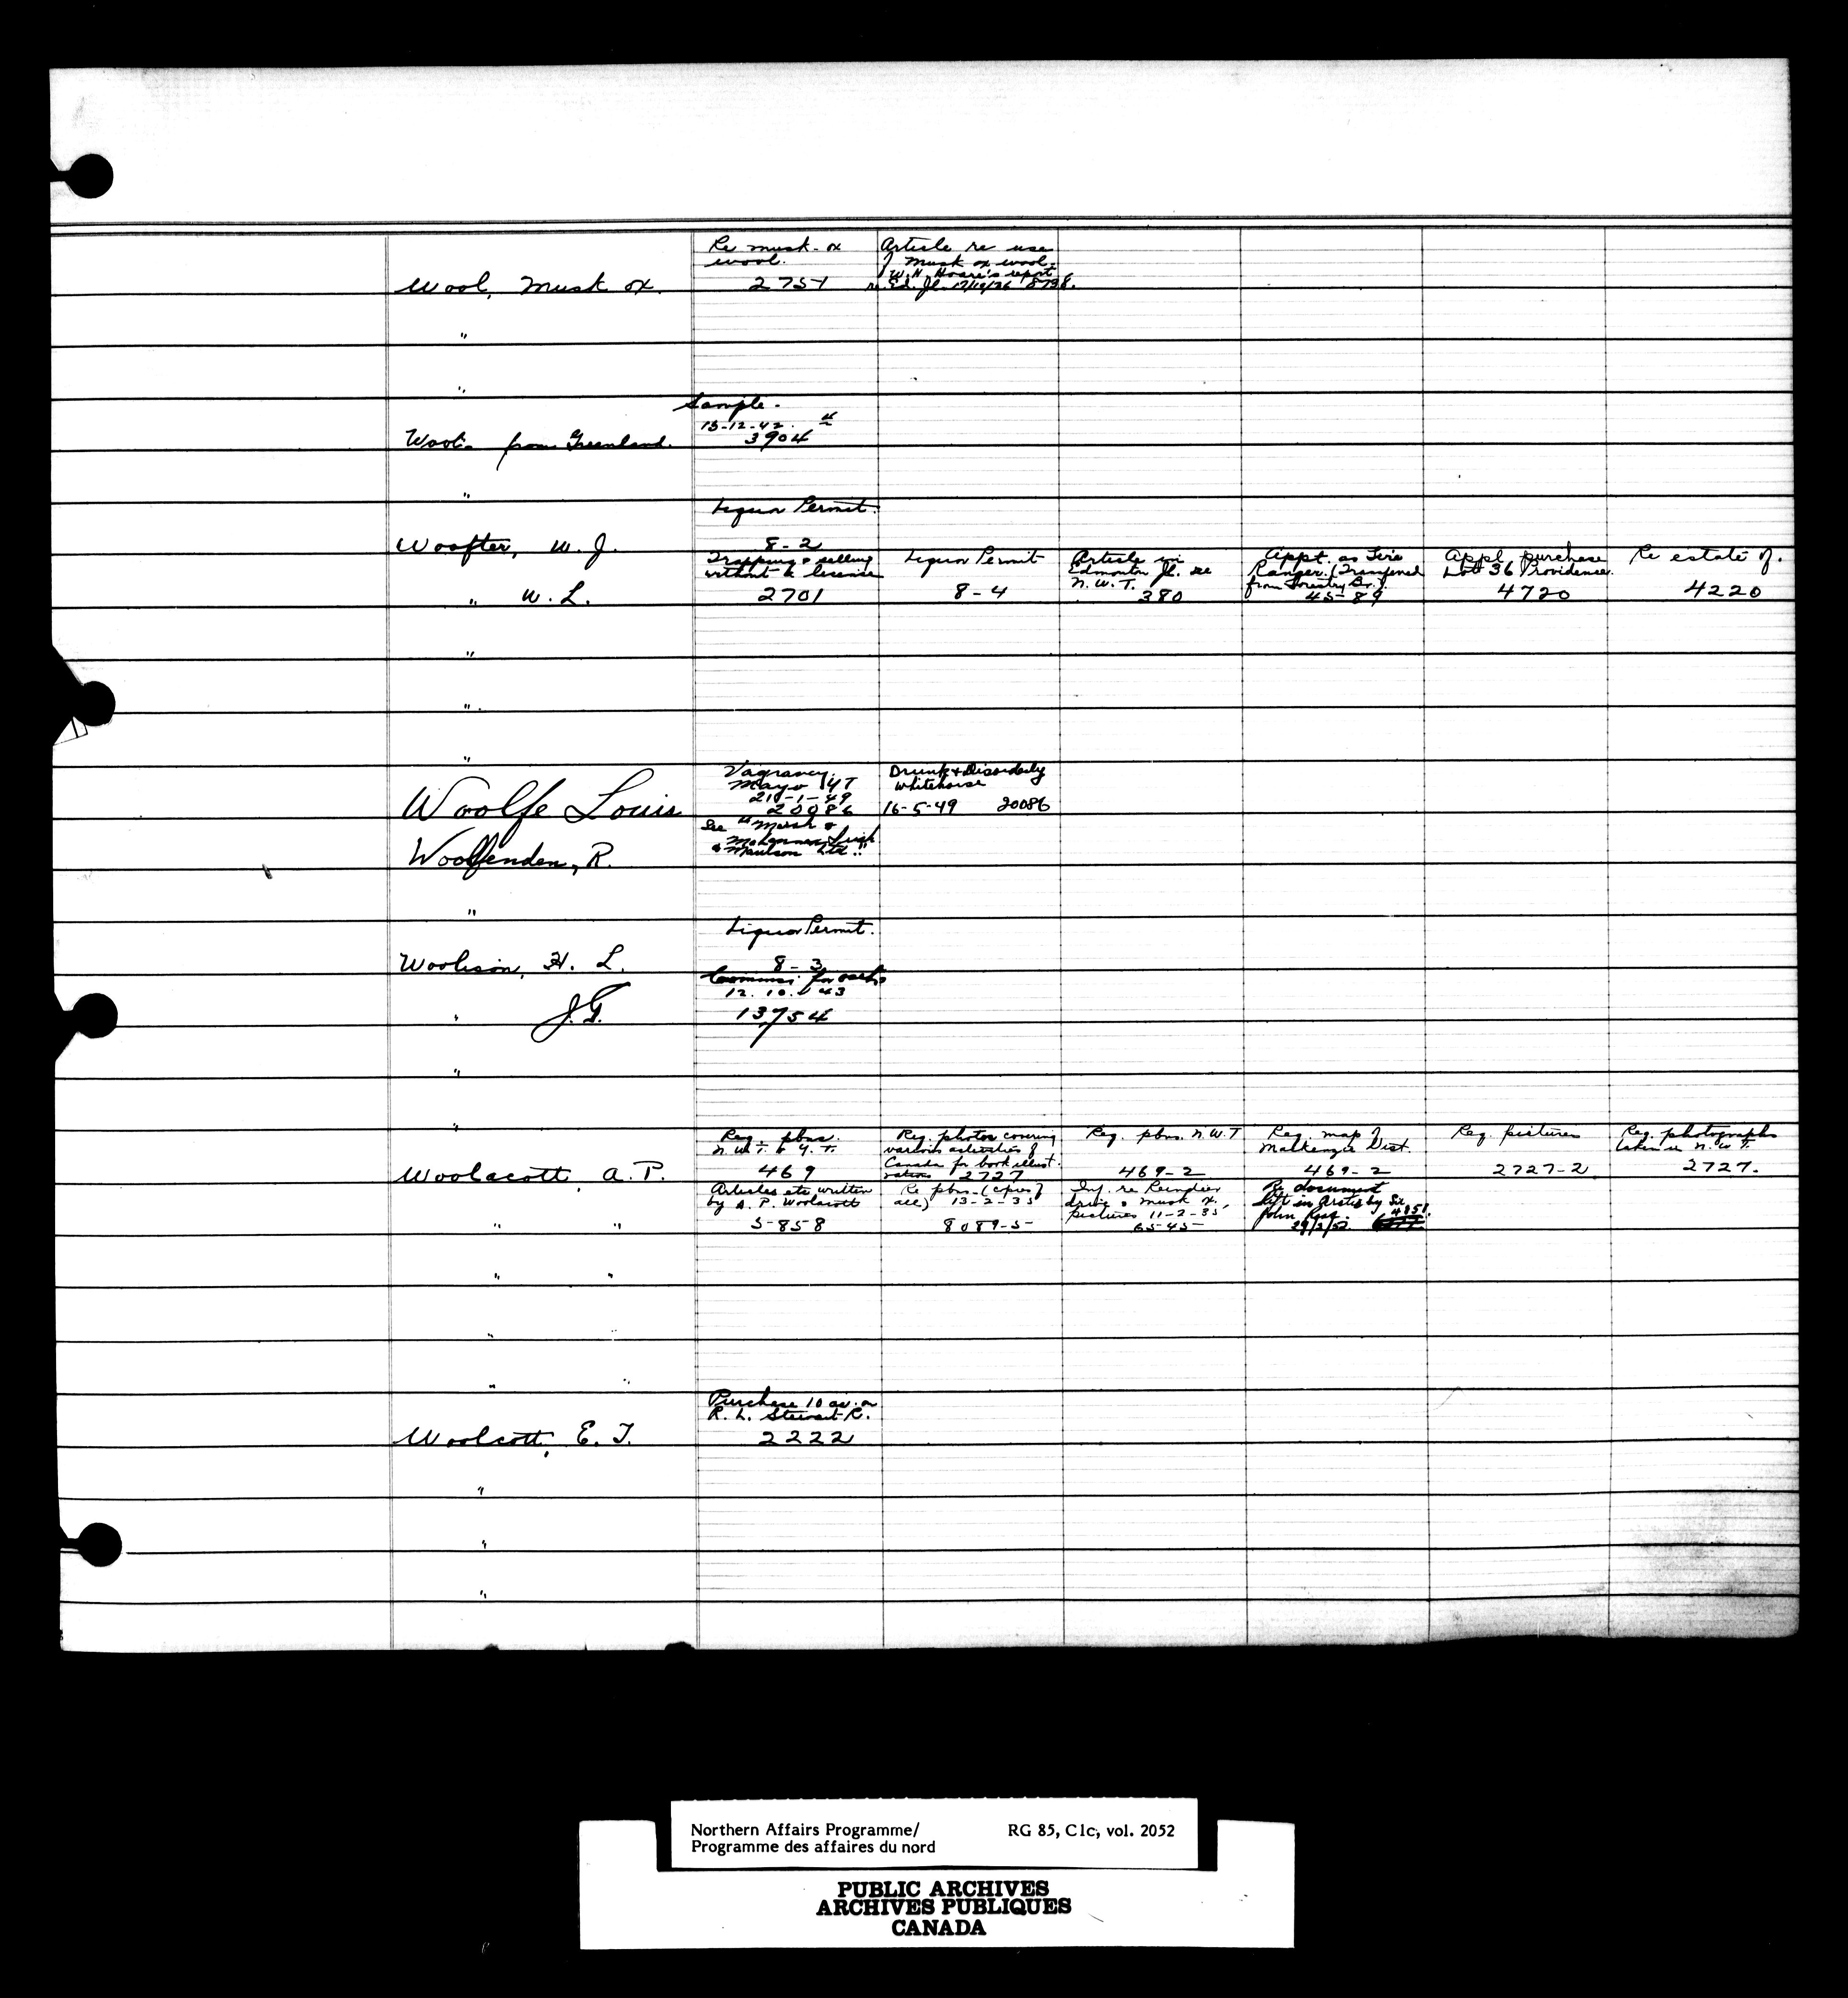 Re musk-ox
wool.
Article re use
of musk ox wool-
W.H. Hoare's report
Ed. Jl. 17/10/26 8738.
Wool, Musk ox.
2751
"
"
Sample-
13-12-42.
Wool- from Greenland.
3904
"
Liquor Permit.
Woofter, W. J.
8-2
Trapping & selling
without a license
Liquor Permit
Article in
Edmonton Jl. re
N.W.T.
Appt. as Fire
Ranger. (Transferred
from Forestry Br.)
Appl. purchase
Lot 36 Providence.
Re estate of.
" W. L.
2701
8-4
380
45-89
4720
4220
"
"
"
Vagrancy
Mayo YT
21-1-49
20086
Drunk & Disorderly
Whitehorse
16-5-49 20086
Woolfe Louis
See "Marsh &
Ltd."
Woolfenden, R.
"
Liquor Permit.
Woolison, H. L.
8-3
12.10.43
" J.G.
13754
"
"
Req. pbns.
N.W.T. & Y.T.
Req. photos covering
various activities of
Canada for book illust-
rations 2727
Req. pbns. N.W.T
Req. map of
Mackenzie Dist.
Req. pictures
Req. photographs
taken in N.W.T.
Woolacott, A. P.
469
469-2
469-2
2727-2
2727.
Articles etc written
by A. P. Woolacott
Re pbns-(copies
13-2-35
Inf. re Reindeer
drive & musk ox
pictures 11-2-35,
Re document
left in Arctic by Sir
John 4851.
29/2/52.
" "
5-858
8089-5-
6545-
" "
"
" "
Purchase 10 ac. on
R. L. Stewart R.
Woolcott, E. T.
2222
"
"
"
Northern Affairs Programme/
Programme des affaires du nord
RG 85, C1c, vol. 2052
PUBLIC ARCHIVES
ARCHIVES PUBLIQUES
CANADA